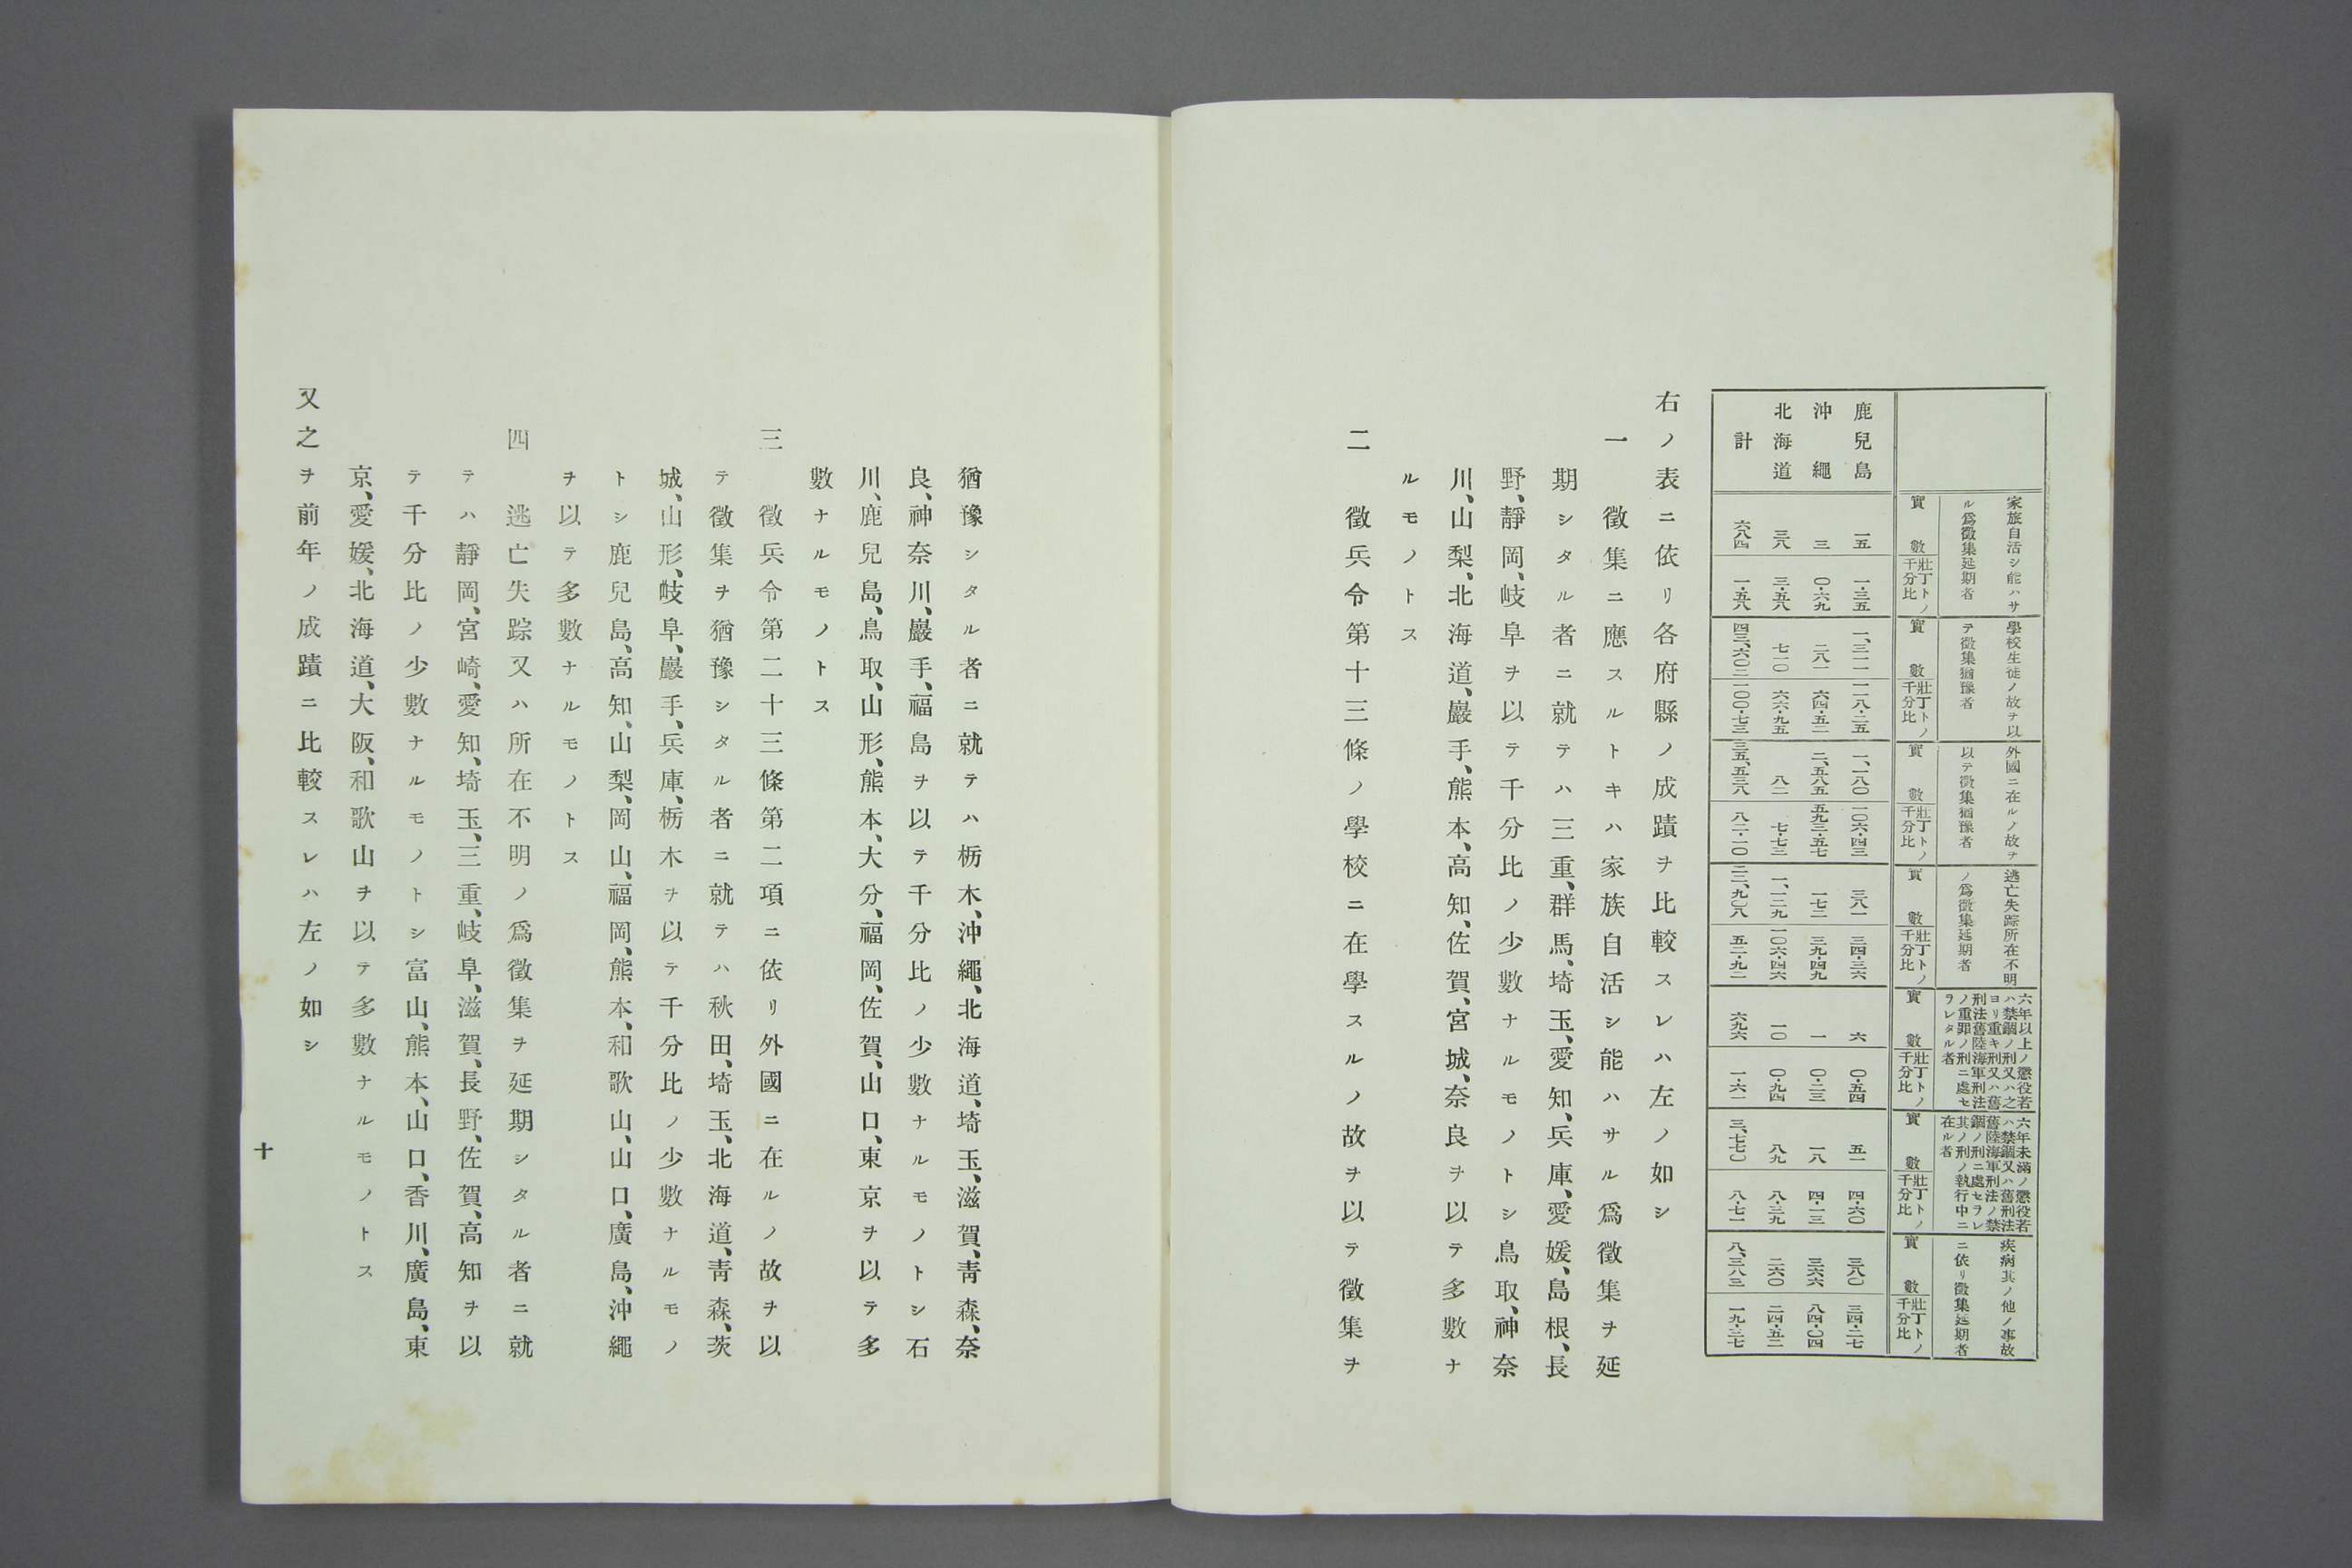 家族自活シ能ハサ
ル爲徵集延期者
學校生徒ノ故ヲ以
テ徵集猶豫者
外國ニ在ルノ故ヲ
以テ徵集猶豫者
逃亡失踪所在不明
ノ爲徵集延期者
六年以上ノ懲役若
ハ禁錮ノ刑又ハ之
ヨリ重キ刑又ハ舊
刑法舊陸海軍刑法
ノ重罪ノ刑ニ處セ
ラレタル者
六年未滿ノ懲役若
ハ禁錮又ハ舊刑法
舊陸海軍刑法ノ禁
錮ノ刑ニ處セラレ
其ノ刑ノ執行中ニ
在ル者
疾病其ノ他ノ事故
ニ依リ徵集延期者
實數 壯丁トノ千分比 實數 壯丁トノ千分比 實數 壯丁トノ千分比 實數 壯丁トノ千分比 實數 壯丁トノ千分比 實數 壯丁トノ千分比 實數 壯丁トノ千分比
鹿兒島 一五 一・三五 一、三一一 一一八・二五 一、一八〇 一〇六・四三 三八一 三四・三六 六 〇・五四 五一 四・六〇 三八〇 三四・二七
沖繩 三 〇・六九 二八一 六四・五二 二、五八五 五九三・五七 一七二 三九・四九 一 〇・二三 一八 四・一三 三六六 八四・〇四
北海道 三八 三・五八 七一〇 六六・九五 八二 七・七三 一、一二九 一〇六・四六 一〇 〇・九四 八九 八・三九 二六〇 二四・五二
計 六八四 一・五八 四三、六〇二 一〇〇・七三 三五、五三八 八二・一〇 二二、九〇八 五二・九二 六九六 一・六一 三、七七〇 八・七一 八、三八三 一九・三七
右ノ表ニ依リ各府縣ノ成蹟ヲ比較スレハ左ノ如シ
一 徵集ニ應スルトキハ家族自活シ能ハサル爲徵集ヲ延
期シタル者ニ就テハ三重、群馬、埼玉、愛知、兵庫、愛媛、島根、長
野、靜岡、岐阜ヲ以テ千分比ノ少數ナルモノトシ鳥取、神奈
川、山梨、北海道、巖手、熊本、高知、佐賀、宮城、奈良ヲ以テ多數ナ
ルモノトス
二 徵兵令第十三條ノ學校ニ在學スルノ故ヲ以テ徵集ヲ
猶豫シタル者ニ就テハ栃木、沖繩、北海道、埼玉、滋賀、靑森、奈
良、神奈川、巖手、福島ヲ以テ千分比ノ少數ナルモノトシ石
川、鹿兒島、鳥取、山形、熊本、大分、福岡、佐賀、山口、東京ヲ以テ多
數ナルモノトス
三 徵兵令第二十三條第二項ニ依リ外國ニ在ルノ故ヲ以
テ徵集ヲ猶豫シタル者ニ就テハ秋田、埼玉、北海道、靑森、茨
城、山形、岐阜、巖手、兵庫、栃木ヲ以テ千分比ノ少數ナルモノ
トシ鹿兒島、高知、山梨、岡山、福岡、熊本、和歌山、山口、廣島、沖繩
ヲ以テ多數ナルモノトス
四 逃亡失踪又ハ所在不明ノ爲徵集ヲ延期シタル者ニ就
テハ靜岡、宮崎、愛知、埼玉、三重、岐阜、滋賀、長野、佐賀、高知ヲ以
テ千分比ノ少數ナルモノトシ富山、熊本、山口、香川、廣島、東
京、愛媛、北海道、大阪、和歌山ヲ以テ多數ナルモノトス
又之ヲ前年ノ成蹟ニ比較スレハ左ノ如シ
十